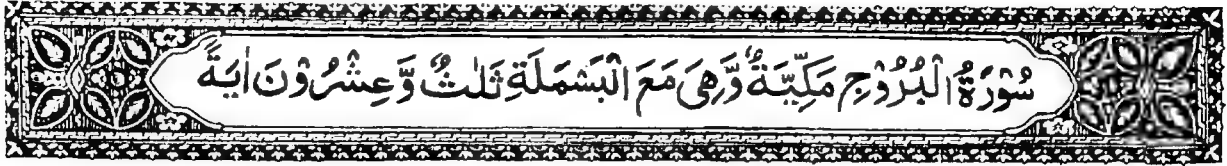 سُوْرَةُ الْبُرُوْجِ مَكِّيَّةٌ وَّهِىَ مَعَ الْبَسْمَلَةِ ثَلٰثٌ وَّ عِشْرُوْنَ اٰيَةً